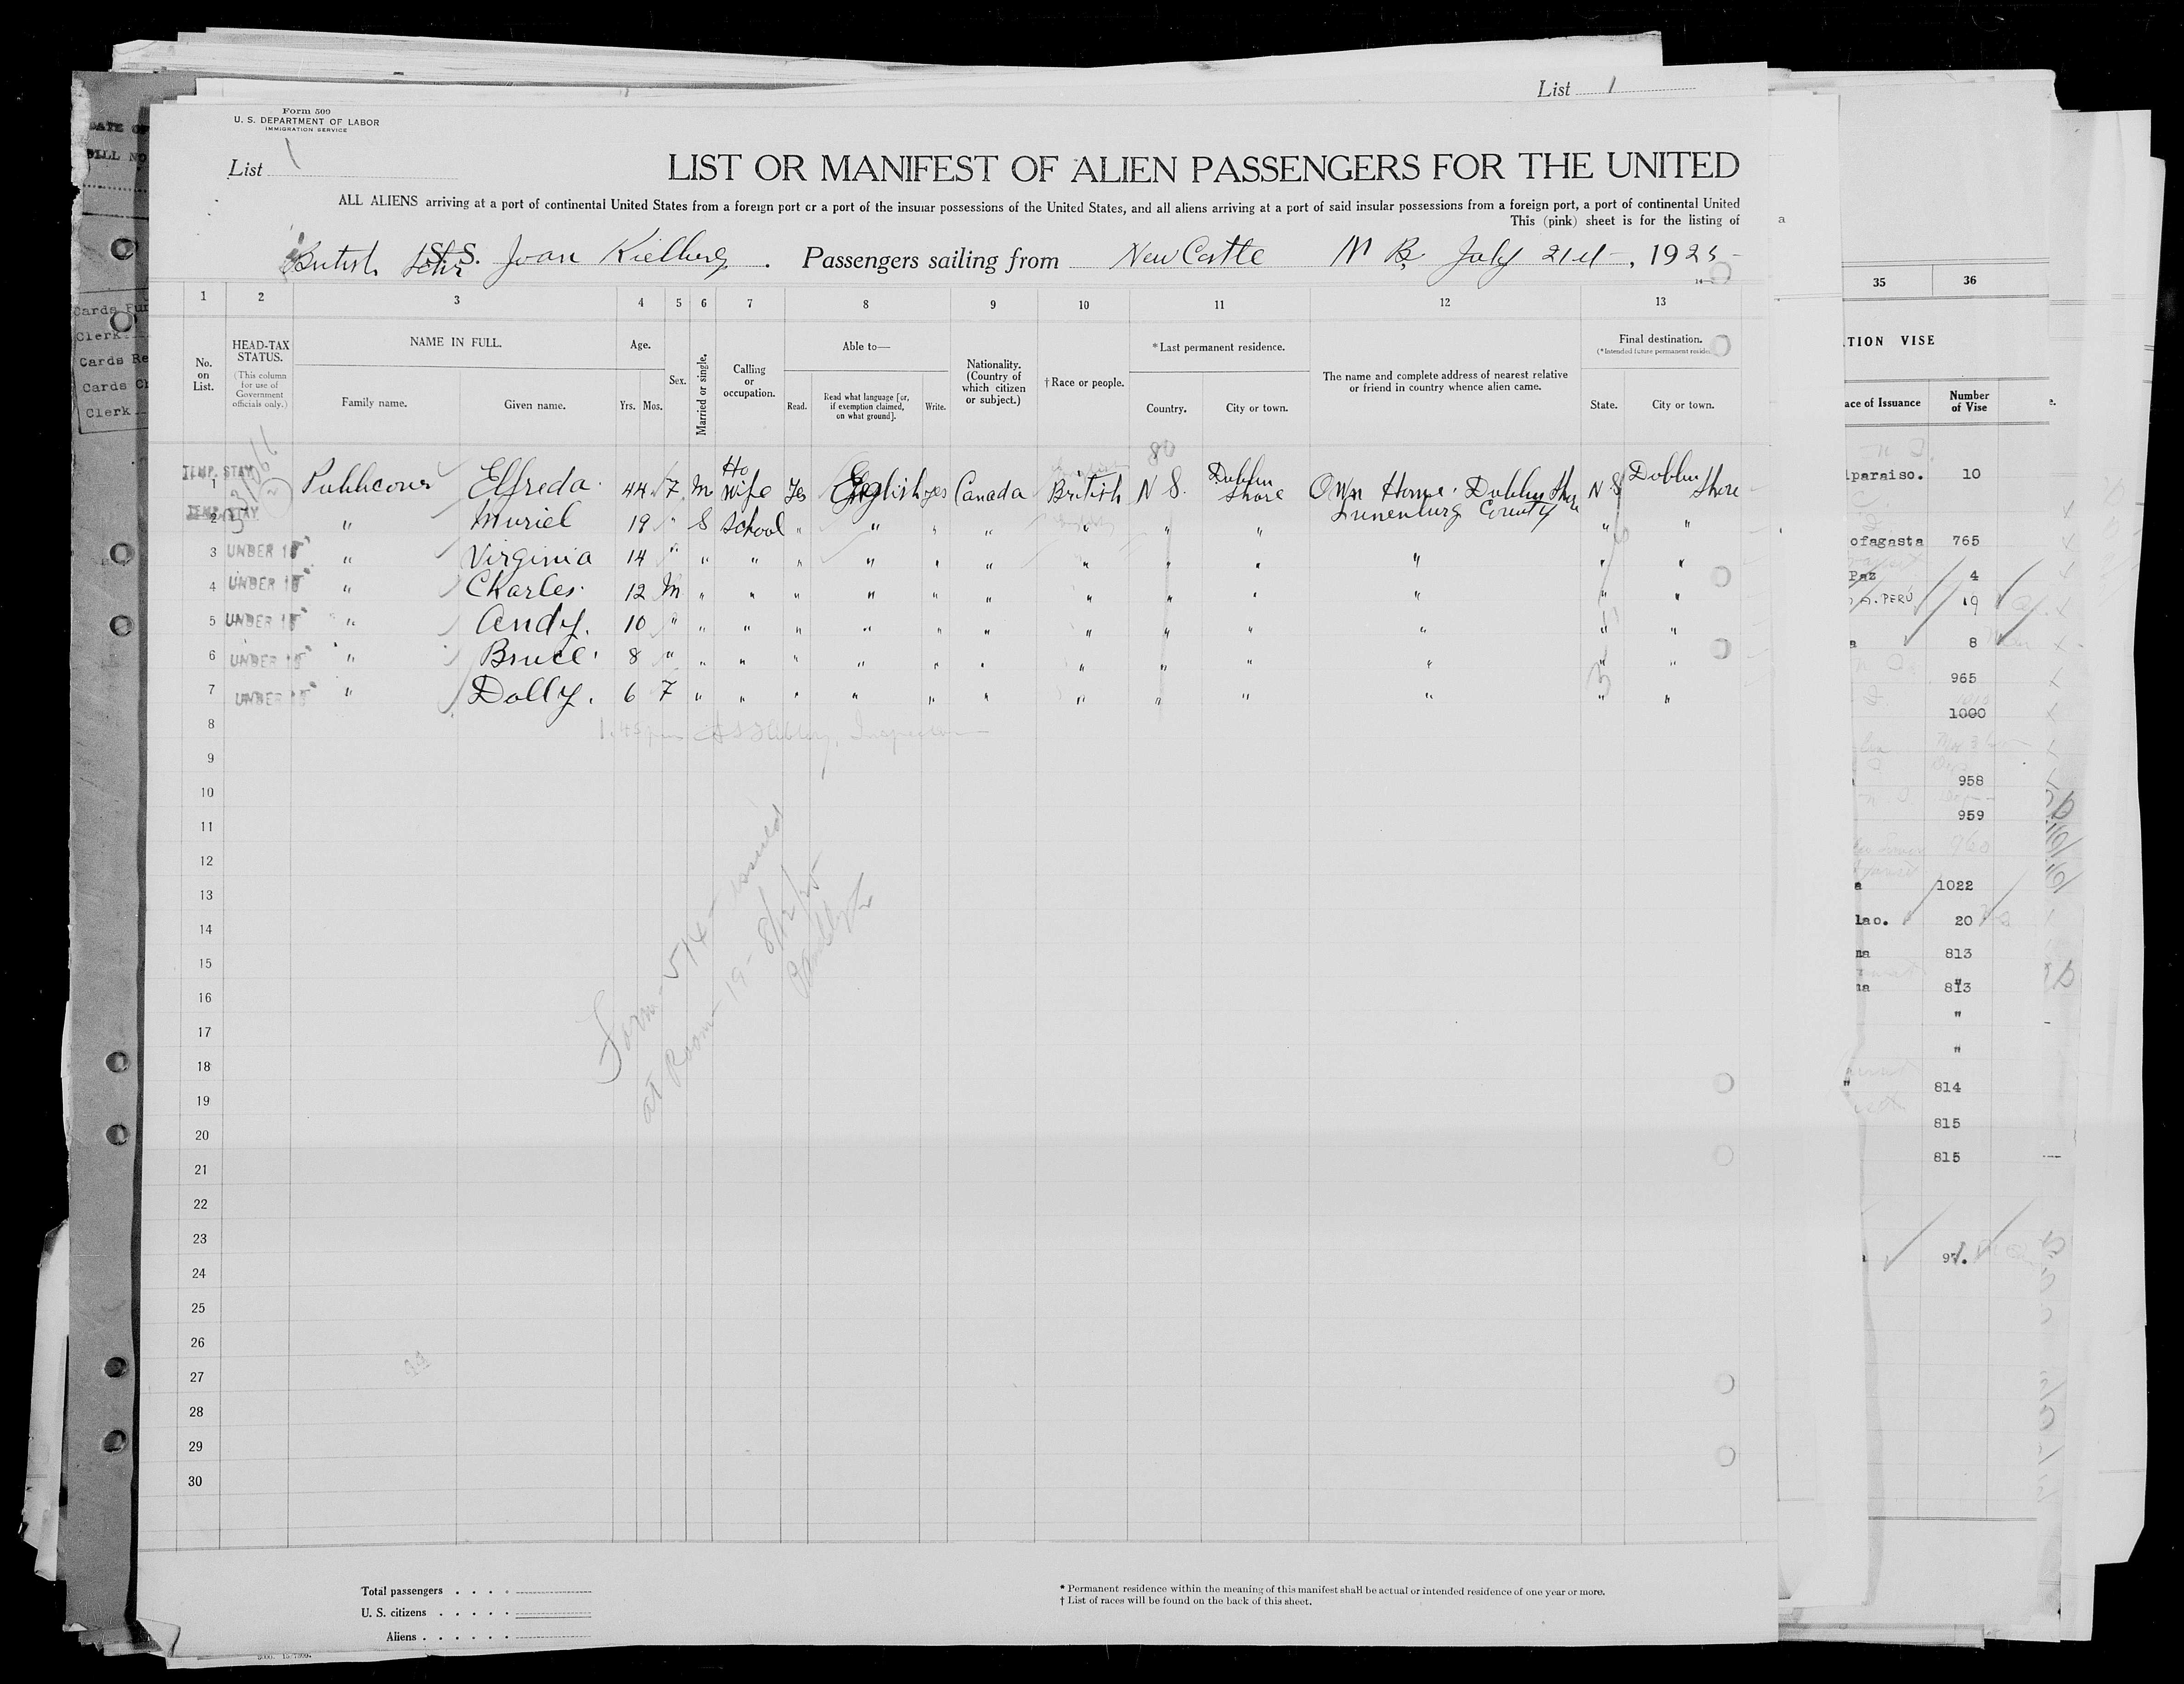 List 1
Form 500
U. S. DEPARTMENT OF LABOR
IMMIGRATION SERVICE
List 1
LIST OR MANIFEST OF ALIEN PASSENGERS FOR THE UNITED
ALL ALIENS arriving at a port of continental United States from a foreign port or a port of the insular possessions of the United States, and all aliens arriving at a port of said insular possessions from a foreign port, a port of continental United
This (pink) sheet is for the listing of
British Schr S. S. Joan Kielberg. Passengers sailing from New Castle N B. July 21st, 1925
1 2 3 4 5 6 7 8 9 10 11 12 13
No. on List.
HEAD-TAX STATUS.
(This column for use of Government officials only.)
NAME IN FULL.
Family name. Given name.
Age.
Yrs. Mos.
Sex.
Married or single.
Calling or occupation.
Able to—
Read. Read what language [or, if exemption claimed, on what ground]. Write.
Nationality. (Country of which citizen or subject.)
† Race or people.
* Last permanent residence.
Country. City or town.
The name and complete address of nearest relative or friend in country whence alien came.
Final destination.
(* Intended future permanent reside
State. City or town.
80
1 TEMP. STAY Elfreda 44 F M Ho Wife Yes English yes Canada British N S. Dublin Shore Own Home Dublin Shore Lunenburg County N S Dublin Shore
2 TEMP. STAY " Muriel 19 " S School " " " " " " " " "
3 UNDER 16 " Virginia 14 " " " " " " " " " " " " "
4 UNDER 16 " Charles 12 M " " " " " " " " " " " "
5 UNDER 16 " Andy. 10 " " " " " " " " " " " " "
6 UNDER 16 " Bruce 8 " " " " " " " " " " " " "
7 UNDER 16 " Dolly. 6 F " " " " " " " " " " " "
8 1.45 pm Inspector
9
10
11
12
13
14
15
16
17
18
19
20
21
22
23
24
25
26
27
28
29
30
Form - 514 - issued
at Room - 19 - 8/12/25
Total passengers
U. S. citizens
Aliens
* Permanent residence within the meaning of this manifest shall be actual or intended residence of one year or more.
† List of races will be found on the back of this sheet.
DATE OF
BILL NO
Cards Fur
Clerk
Cards Re
Cards Ch
Clerk
a
35 36
TION VISE
ace of Issuance Number of Vise
lparaiso. 10
ofagasta 765
Paz 4
A. PERÚ 19
a 8
965
1000
958
959
960
a 1022
lao. 20
na 813
na 813
"
"
" 814
815
815